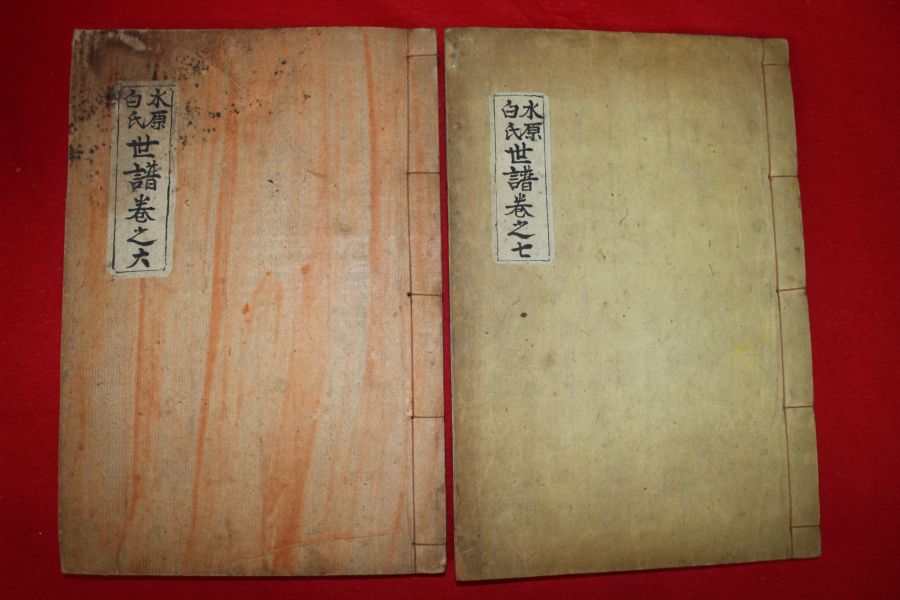 水原
白氏
世譜卷之六
水原
白氏
世譜卷之七